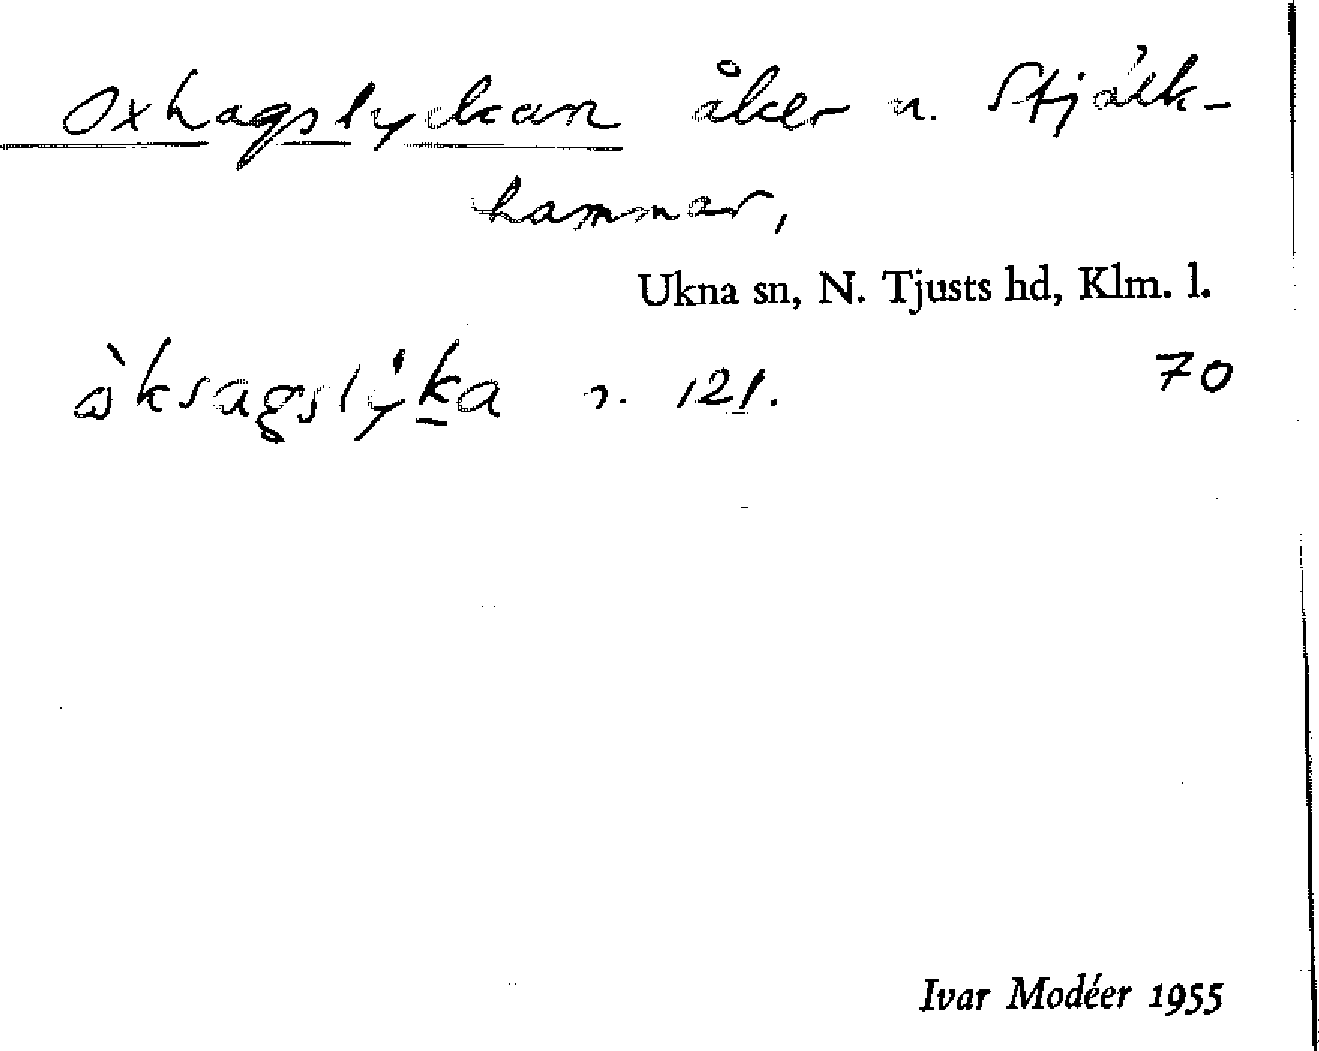 Oxhagslyckan åker u. Stjälk-
hammar,
Ukna sn, N. Tjusts hd, Klm. l.
121. 70
Ivar Modéer 1955